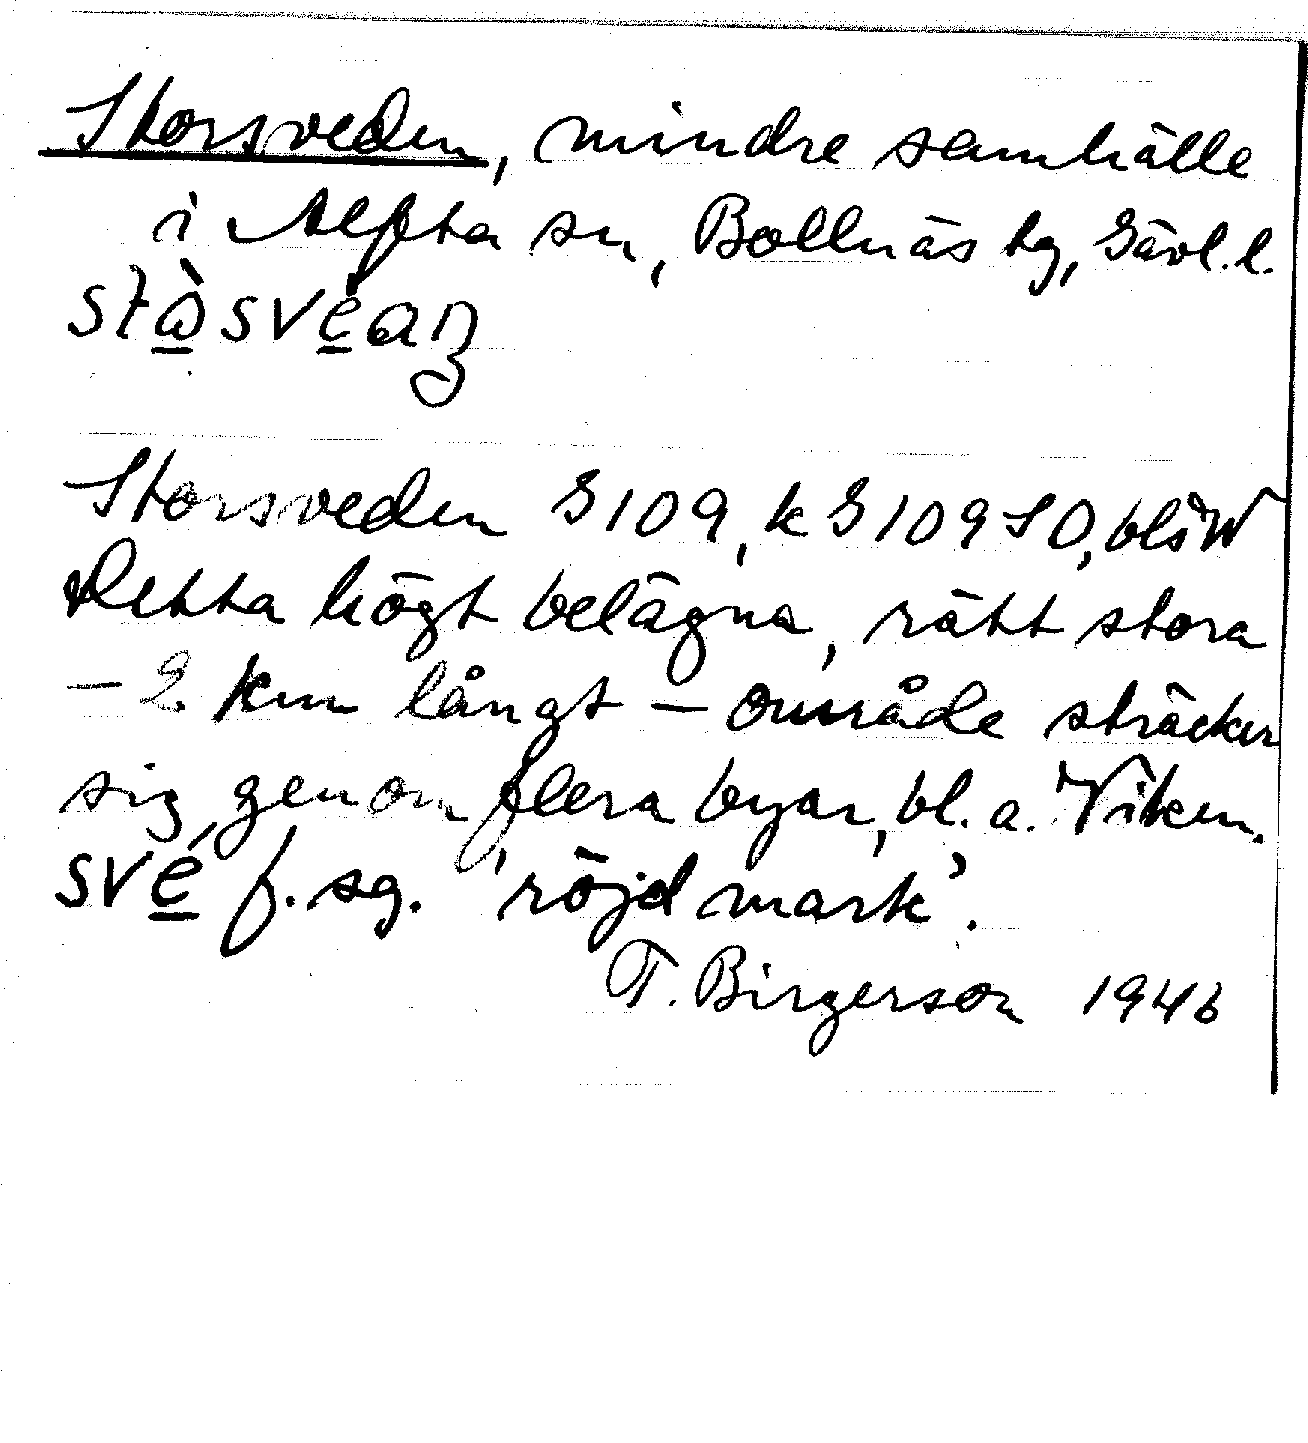 Storsveden, mindre samhälle
i Alfta sn, Bollnäs tg, Gävl. l.
stå̀svéaŋ
Storsveden G 109, k G 109 SO, bl. a.
Detta högt belägna, rätt stora
– 2 km långt – område sträcker
sig genom flera byar, bl. a. Viken.
své f. sg. 'röjd mark'.
T. Birgerson 1946